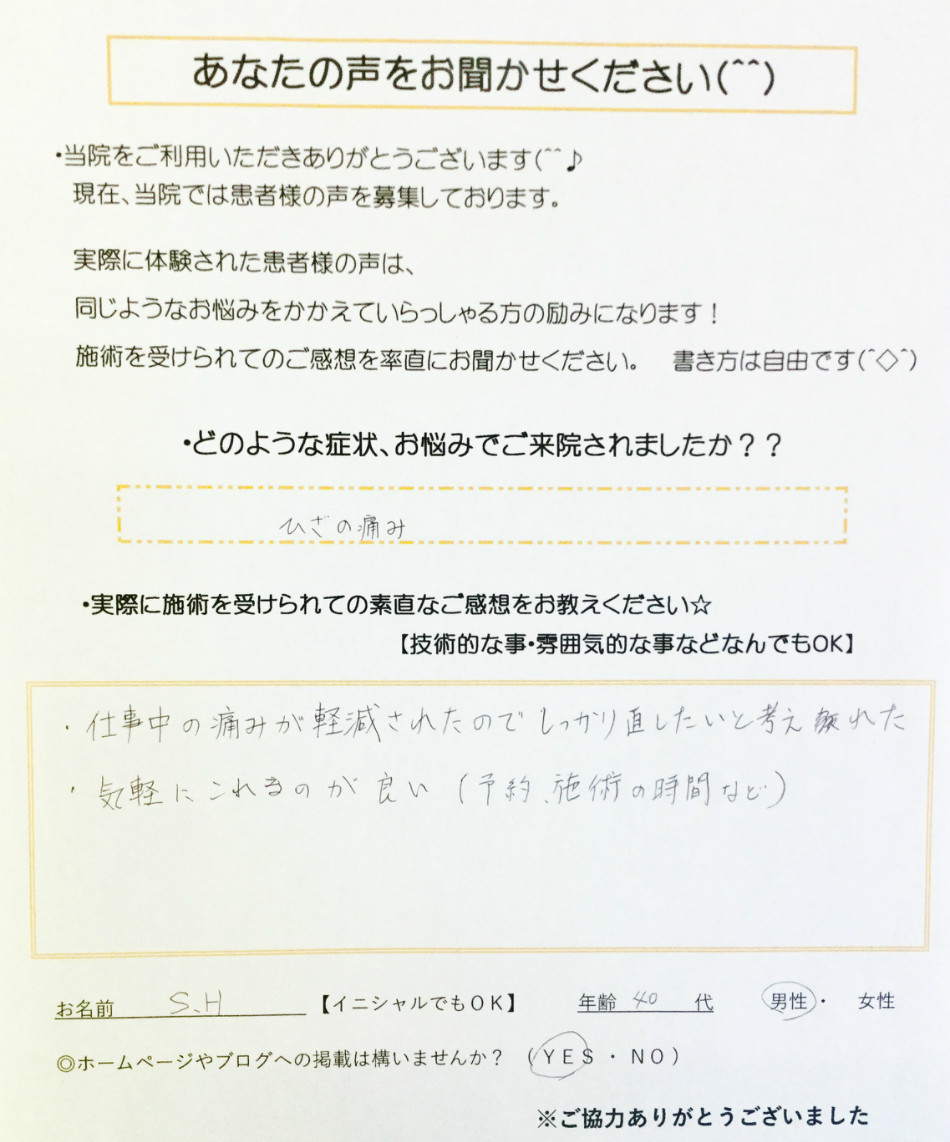 あなたの声をお聞かせください(^^)
・当院をご利用いただきありがとうございます(^^♪
現在、当院では患者様の声を募集しております。
実際に体験された患者様の声は、
同じようなお悩みをかかえていらっしゃる方の励みになります！
施術を受けられてのご感想を率直にお聞かせください。 書き方は自由です(^◇^)
・どのような症状、お悩みでご来院されましたか？？
ひざの痛み
・実際に施術を受けられての素直なご感想をお教えください☆
【技術的な事・雰囲気的な事などなんでもOK】
・仕事中の痛みが軽減されたのでしっかり直したいと考え れた
・気軽にこれるのが良い（予約、施術の時間など）
お名前 S.H 【イニシャルでもOK】 年齢 40 代 男性・ 女性
◎ホームページやブログへの掲載は構いませんか？ （YES・NO）
※ご協力ありがとうございました